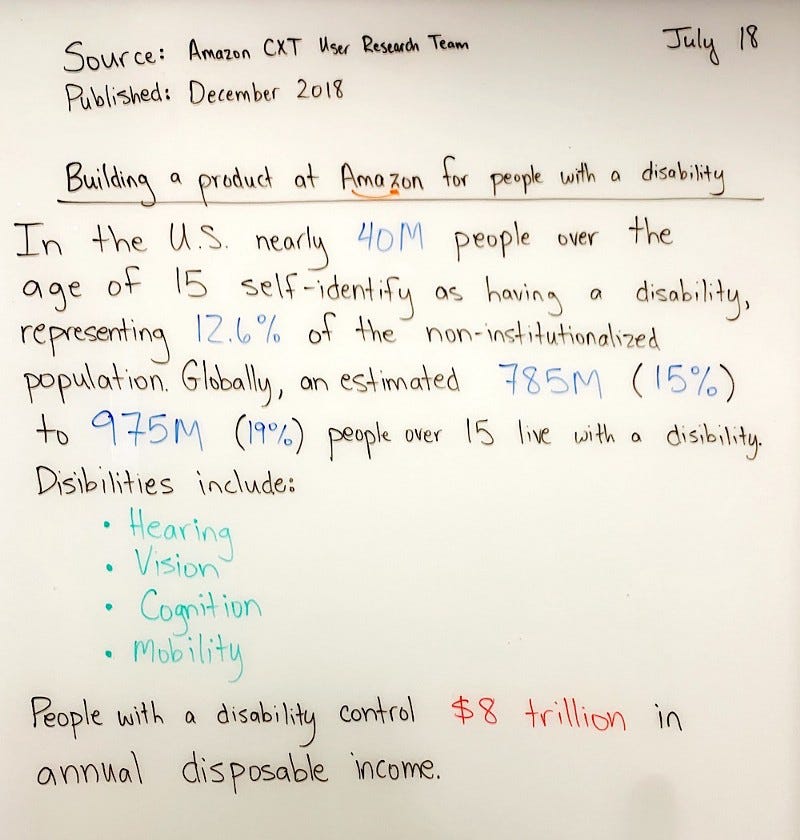 Source: Amazon CXT User Research Team
July 18
Published: December 2018
Building a product at Amazon for people with a disability
In the U.S. nearly 40M people over the
age of 15 self-identify as having a disability,
representing 12.6% of the non-institutionalized
population. Globally, an estimated 785M (15%)
to 975M (19%) people over 15 live with a disibility.
Disibilities include:
• Hearing
• Vision
• Cognition
• Mobility
People with a disability control $8 trillion in
annual disposable income.